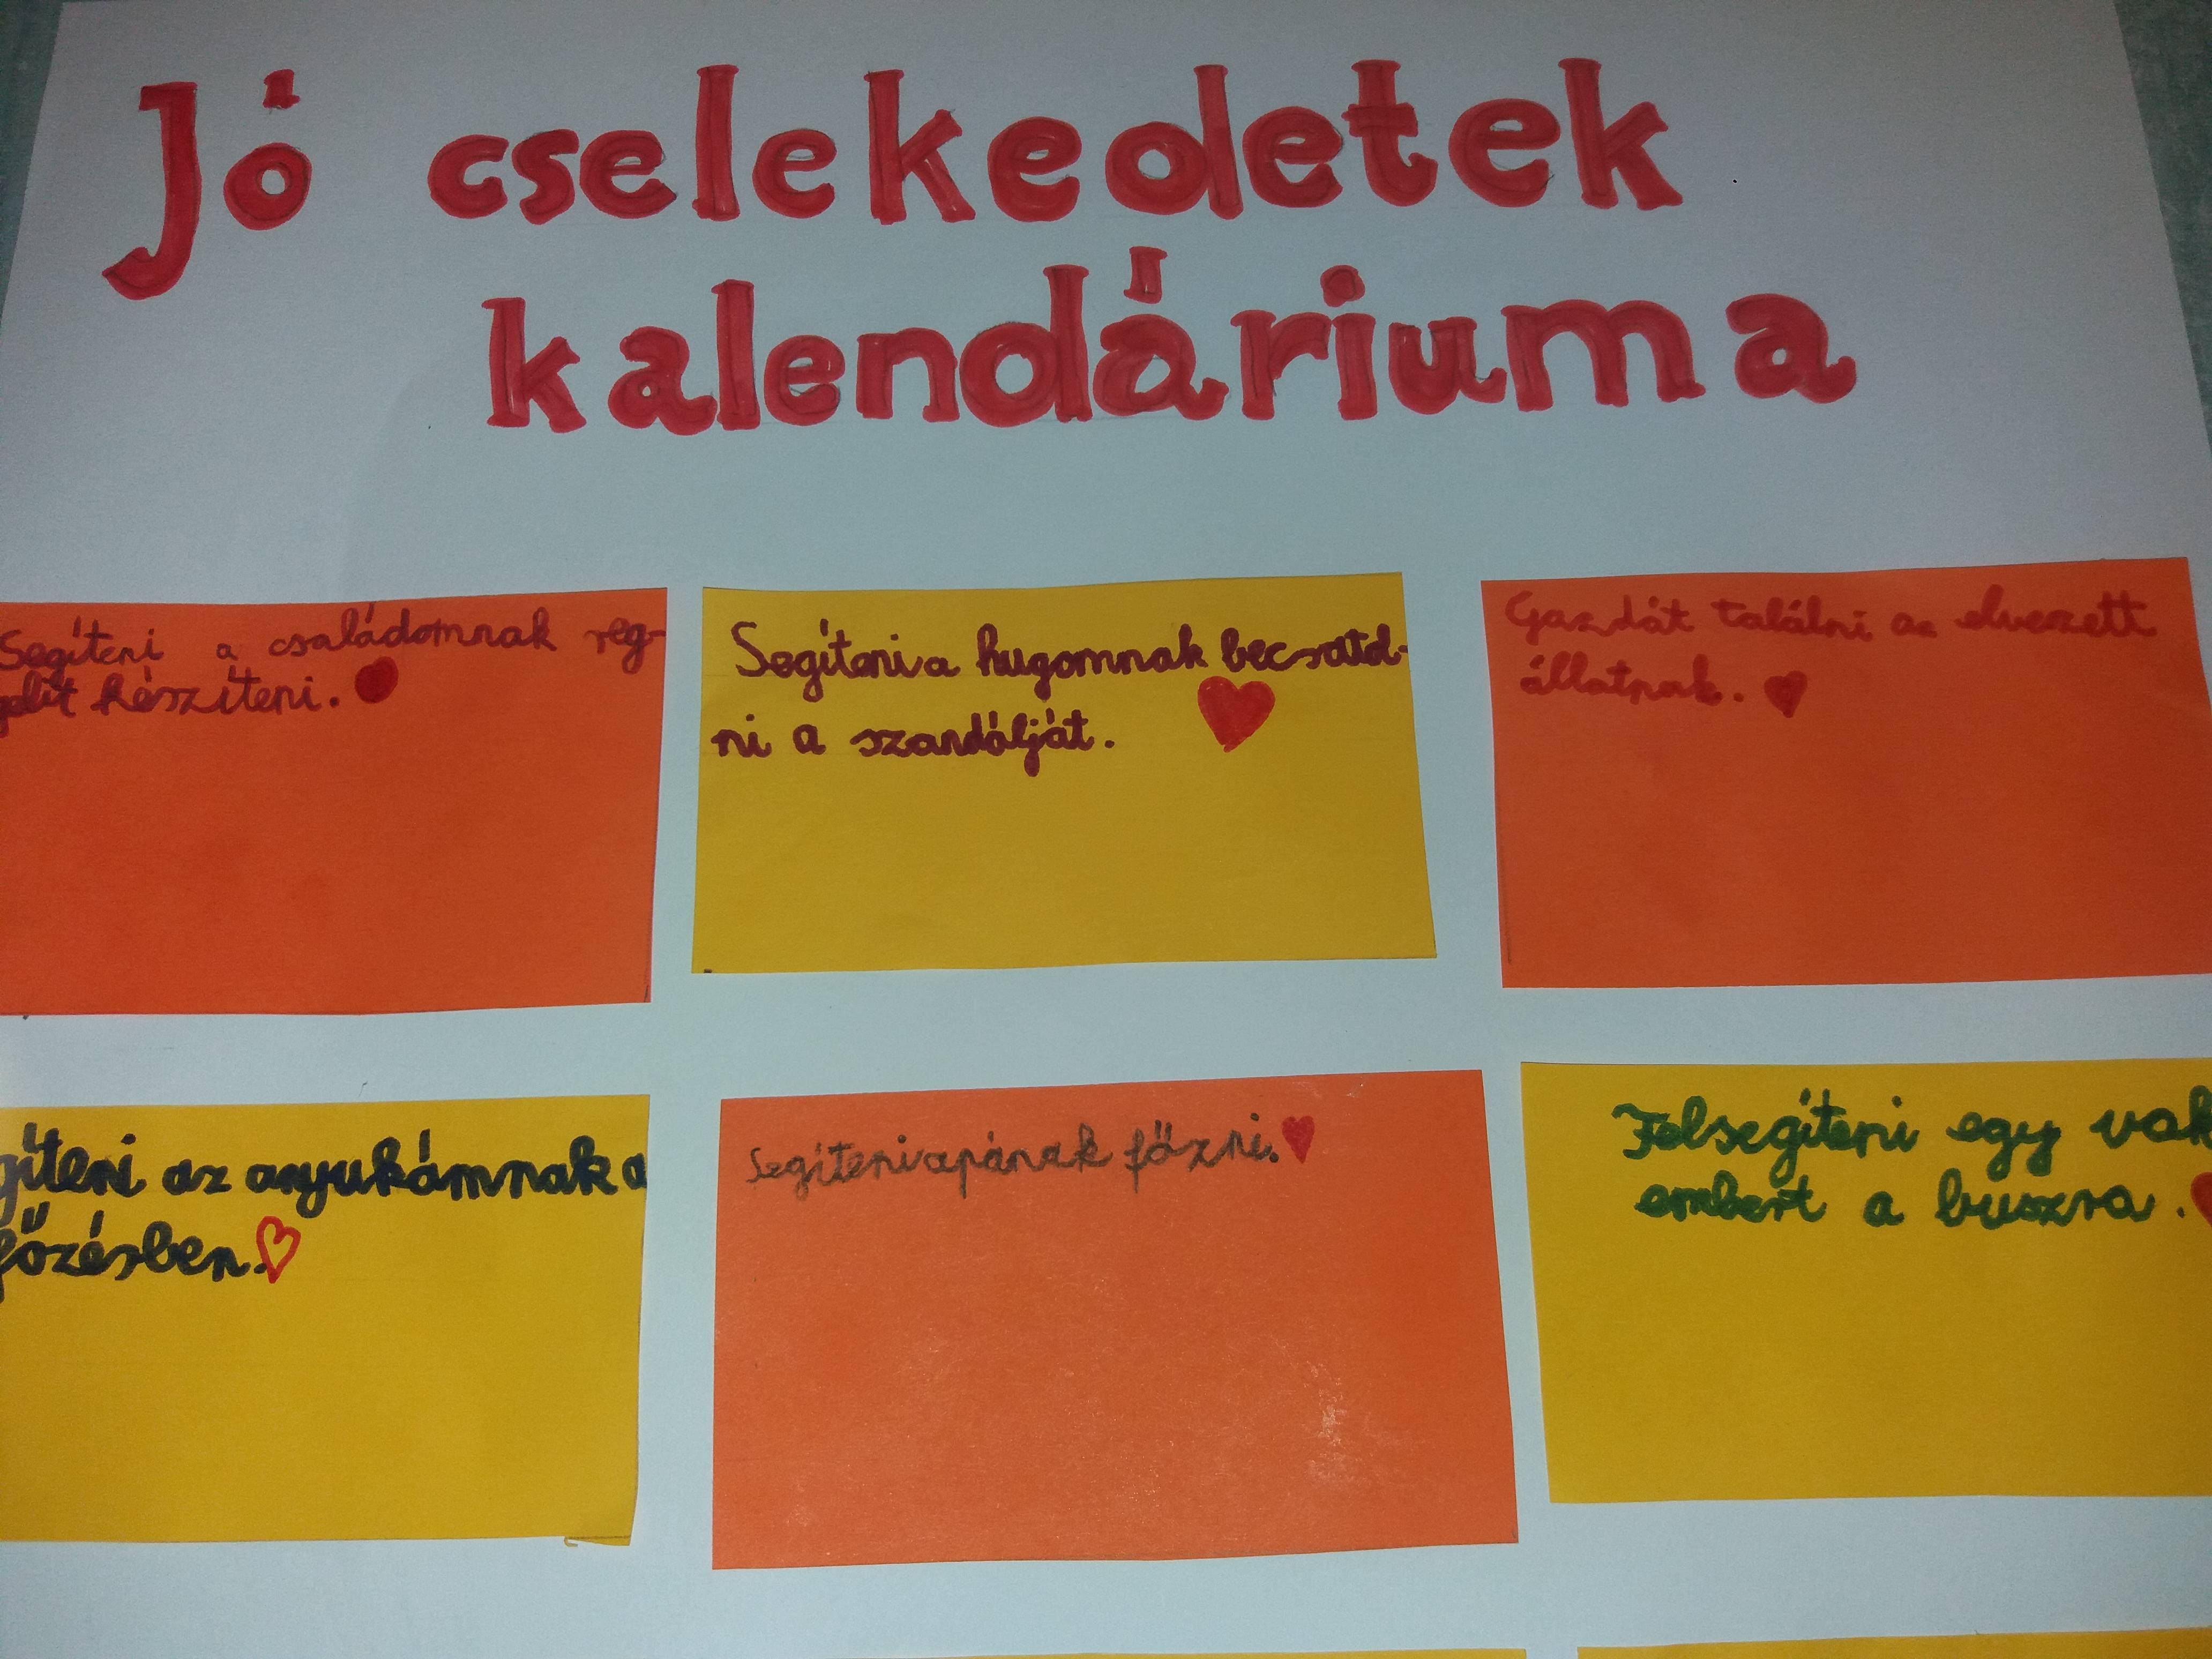 Jó cselekedetek
kalendáriuma
Segíteni a családomnak reg-
gelit készíteni.
Segíteni a hugomnak becsatol-
ni a szandálját.
Gazdát találni az elvezett
állatnak.
gíteni az anyukámnak a
főzésben.
Segíteni apának főzni.
Felsegíteni egy vak
embert a buszra.